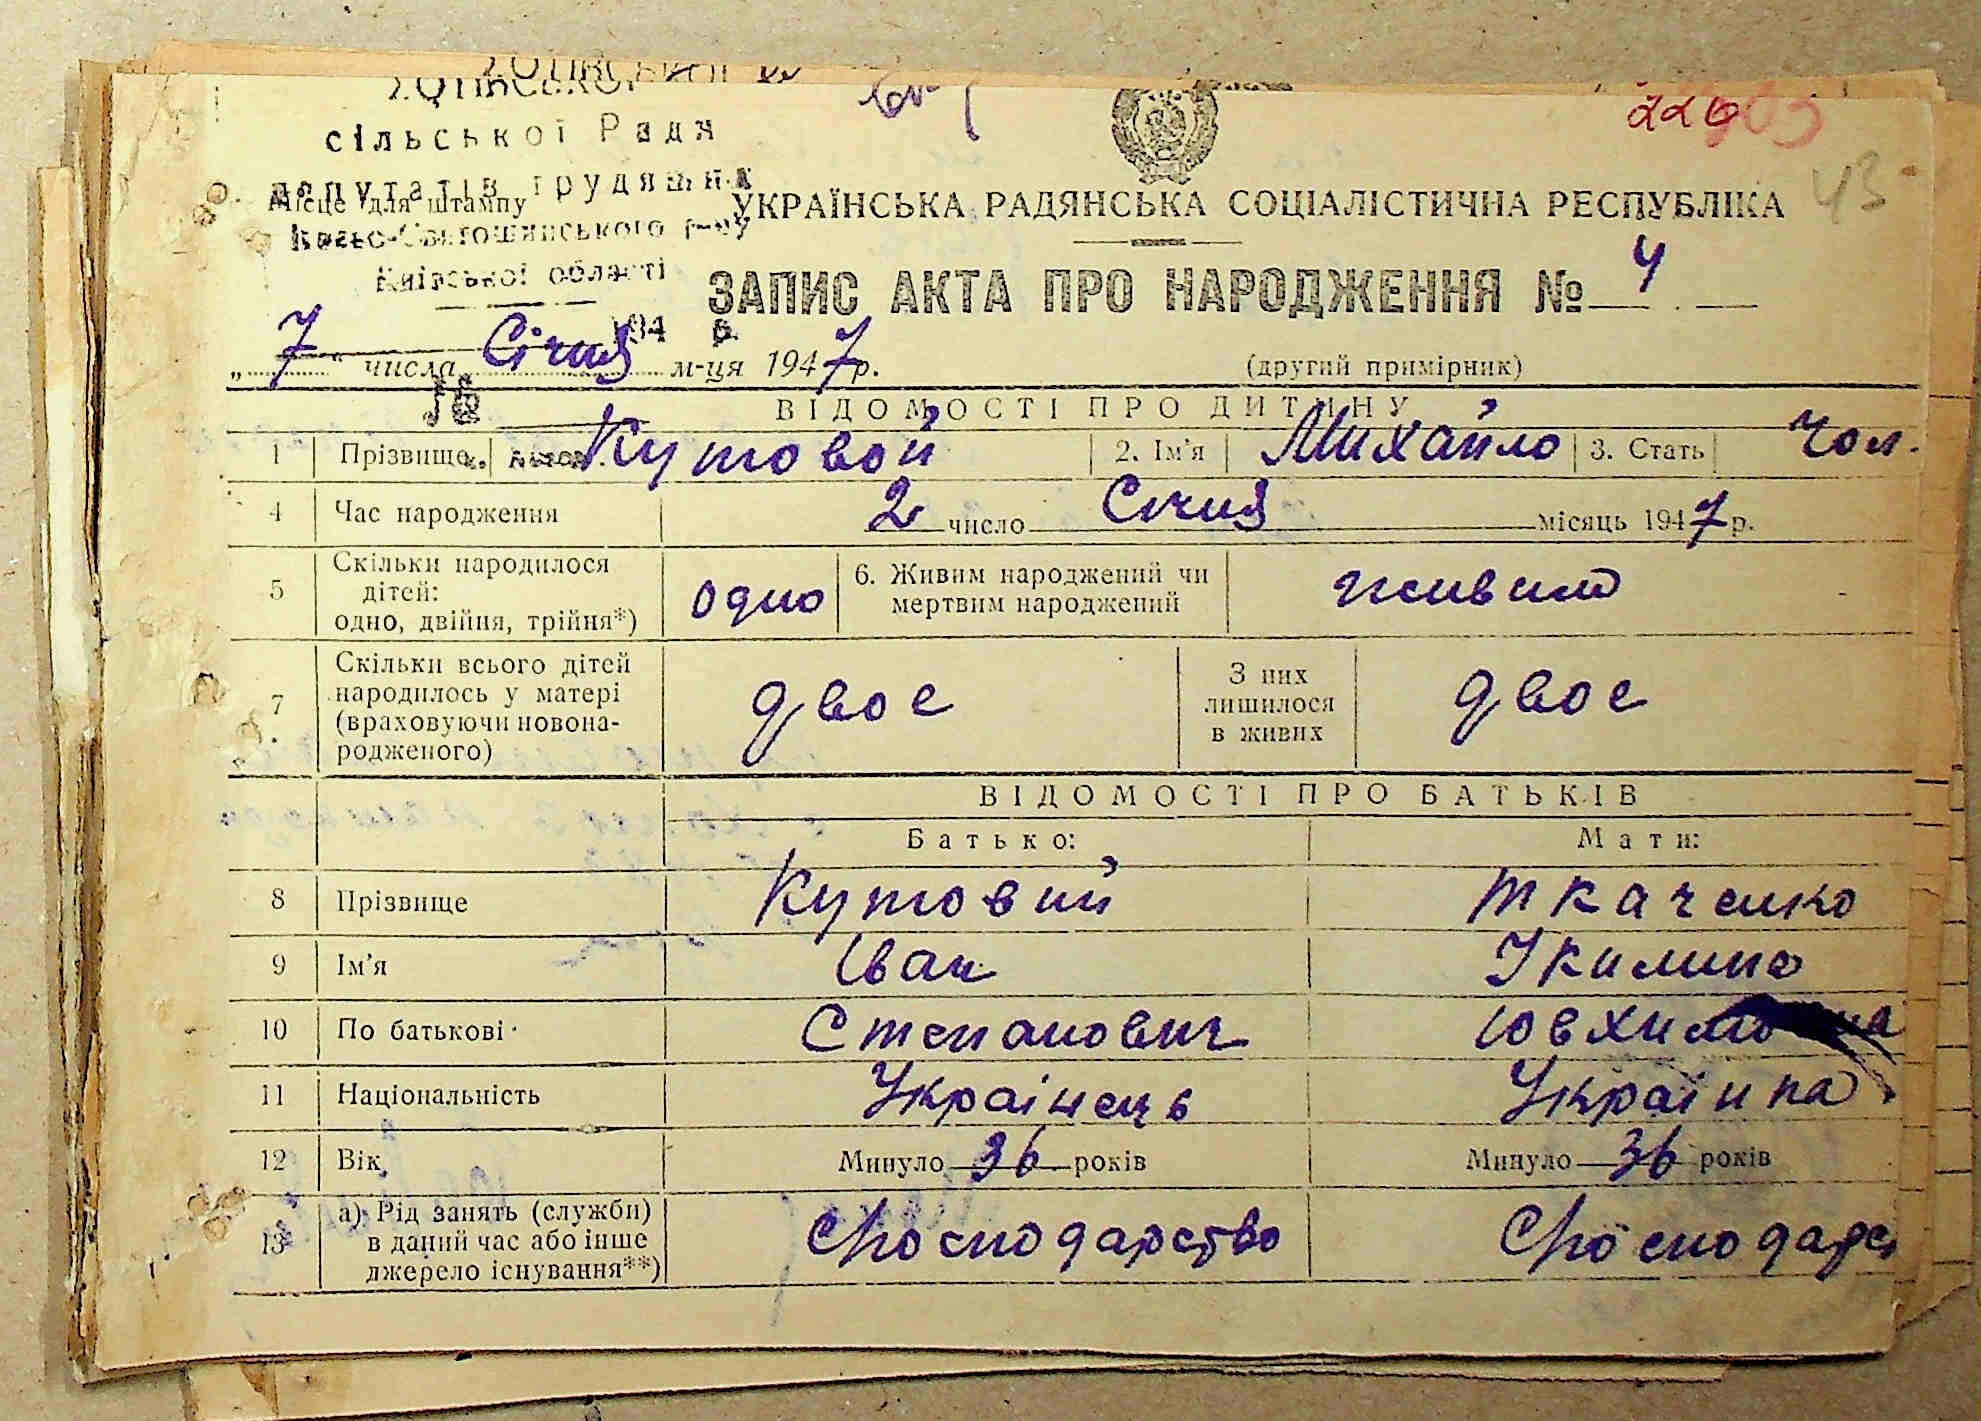 сільської Ради
депутатів трудящих
Місце для штампу
Києво-Святошинського р-ну
Київської області
226
43
УКРАЇНСЬКА РАДЯНСЬКА СОЦІАЛІСТИЧНА РЕСПУБЛІКА
ЗАПИС АКТА ПРО НАРОДЖЕННЯ № 4
„7" числа Січня м-ця 1947 р.
(другий примірник)
ВІДОМОСТІ ПРО ДИТИНУ
1 Прізвище Кутовой 2. Ім'я Михайло 3. Стать Чол.
4 Час народження 2 число Січня місяць 1947 р.
5 Скільки народилося дітей: одно, двійня, трійня*) одно 6. Живим народжений чи мертвим народжений живим
7 Скільки всього дітей народилось у матері (враховуючи новонародженого) двоє З них лишилося в живих двоє
ВІДОМОСТІ ПРО БАТЬКІВ
Батько: Мати:
8 Прізвище Кутовий Ткаченко
9 Ім'я Іван Укилина
10 По батькові Степанович Ювхимовна
11 Національність Українець Україна
12 Вік Минуло 36 років Минуло 36 років
13 а) Рід занять (служби) в даний час або інше джерело існування**)